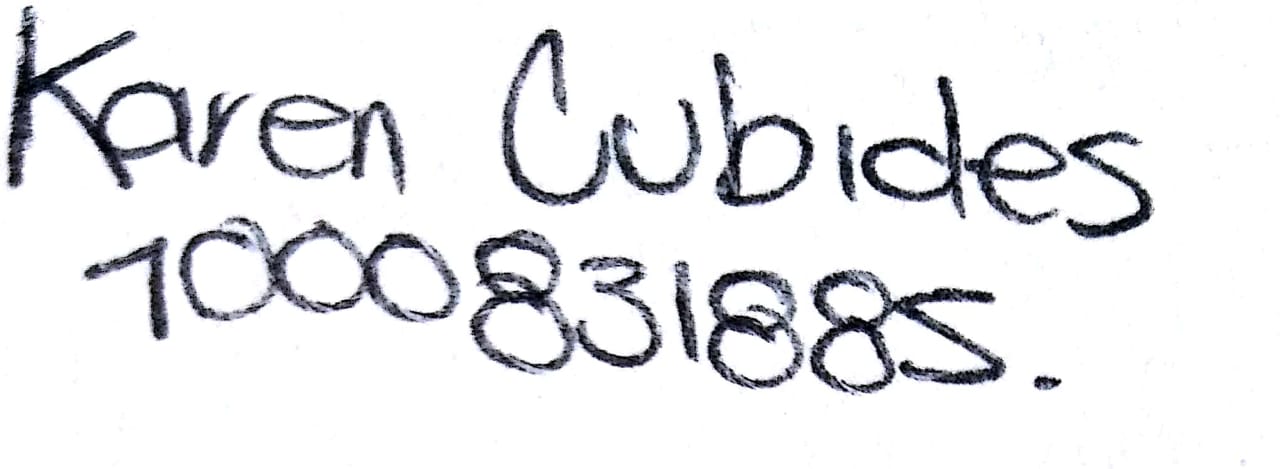 Karen Cubides
1000831885.